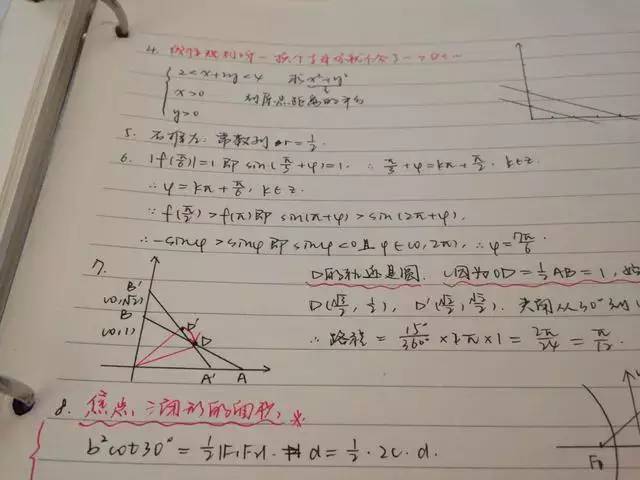 4. 线性规划时一换个
2<x+2y<4 求x²+y²
x>0 到原点距离的平方
y>0
5. 等数列 or r=1/2.
6. |f(π/6)|=1 即 sin(π/3+φ)=1. ∴ π/3+φ=kπ+π/2. k∈z.
∴ φ=kπ+π/6, k∈z.
∵ f(π/2)>f(π) 即 sin(π+φ)>sin(2π+φ).
∴ -sinφ>sinφ 即 sinφ<0 且 φ∈(0,2π), ∴ φ=7π/6.
7.
B'
(0,√2)
B
(0,1)
D'
D
A'
A
D的轨迹是圆. (因为OD=1/2AB=1,
D(√3/2, 1/2), D'(√2/2, √2/2). 夹角从30°到
∴ 路程=15°/360°×2π×1=2π/24=π/12.
8. 焦点三角形的面积, ※
b²cot30°=1/2|F₁F₂|·d=1/2·2c·d.
F₁